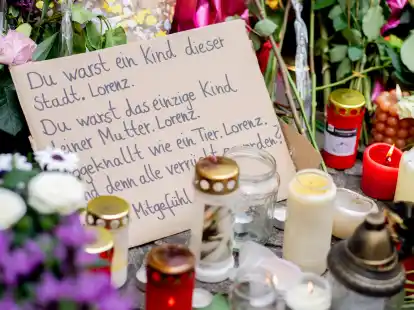 Du warst ein Kind dieser
Stadt. Lorenz.
Du warst das einzige Kind
einer Mutter. Lorenz.
geknallt wie ein Tier. Lorenz.
nd denn alle verrückt geworden?
Mitgefühl